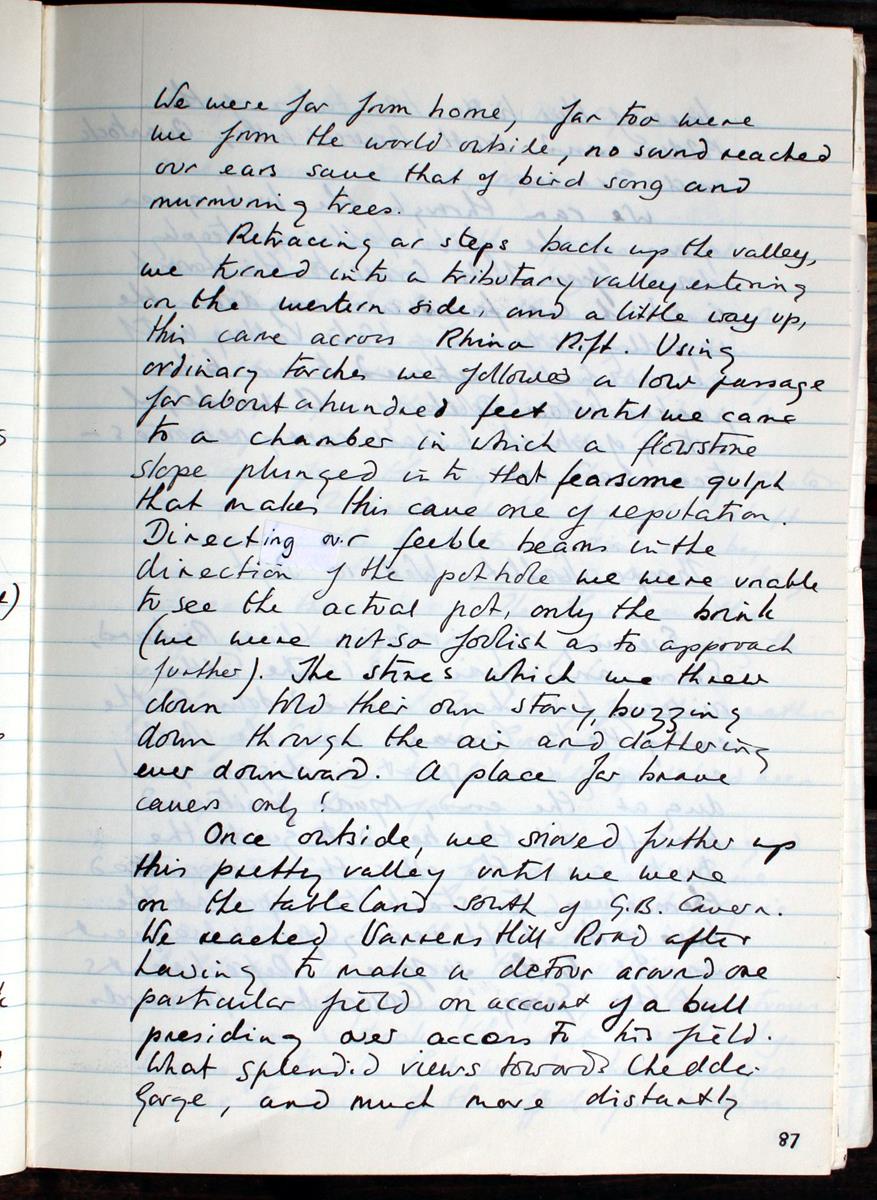 We were far from home, far too were
we from the world outside, no sound reached
our ears save that of bird song and
murmuring trees.
Retracing our steps back up the valley,
we turned into a tributary valley entering
on the western side, and a little way up,
this came across Rhino Rift. Using
ordinary torches we followed a low passage
for about a hundred feet until we came
to a chamber in which a flowstone
slope plunged into that fearsome gulph
that makes this cave one of reputation.
Directing our feeble beams in the
direction of the pothole we were unable
to see the actual pot, only the brink
(we were not so foolish as to approach
further). The stones which we threw
down told their own story, buzzing
down through the air and clattering
ever downward. A place for brave
cavers only!
Once outside, we moved further up
this pretty valley until we were
on the tableland south of G.B. Cavern.
We reached Warrens Hill Road after
having to make a detour around one
particular field on account of a bull
presiding over access to his field.
What splendid views towards Cheddar
Gorge, and much more distantly
87